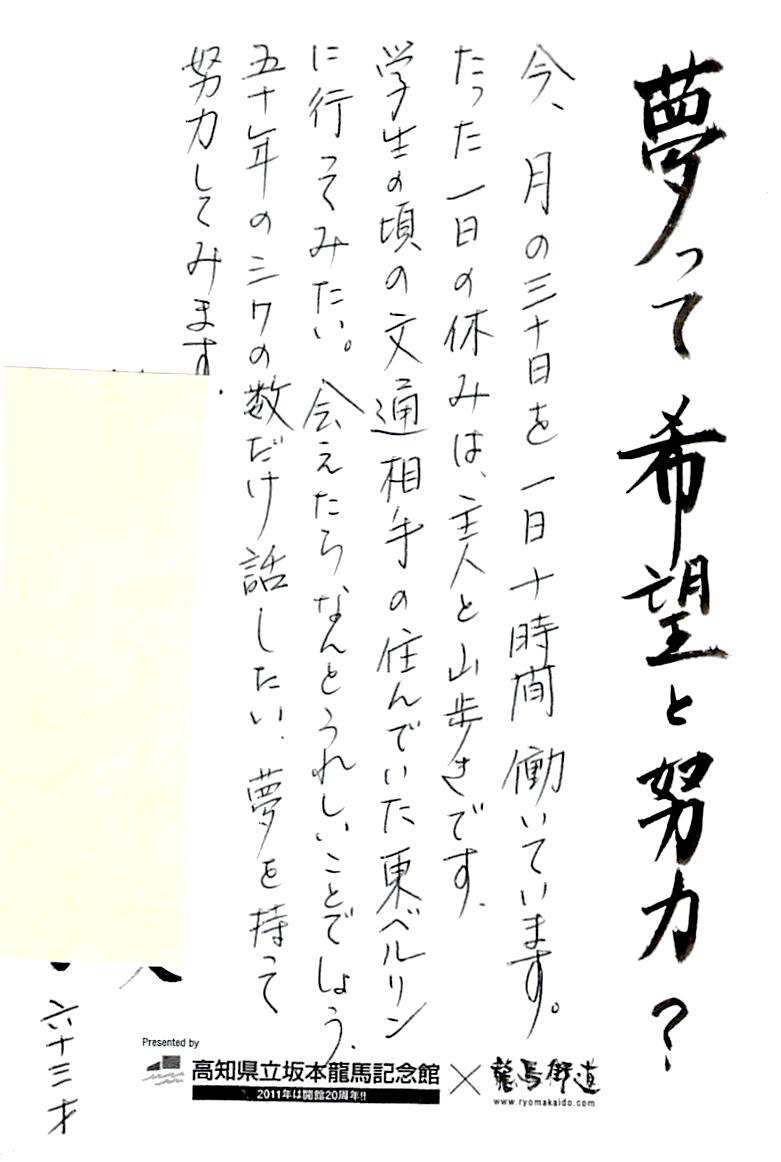 夢って希望と努力?
今、月の三十日を一日十時間働いています。
たった一日の休みは、主人と山歩きです。
学生の頃の文通相手の住んでいた東ベルリン
に行ってみたい。会えたらなんとうれしいことでしょう。
五十年のシワの数だけ話したい。夢を持って
努力してみます。
六十三才
Presented by
高知県立坂本龍馬記念館×龍馬街道
2011年は開館20周年!!
www.ryomakaido.com